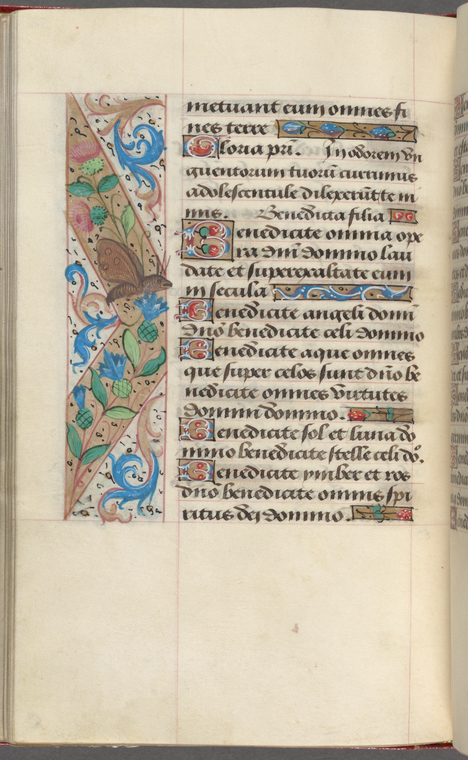 metuant eum omnes fi
nes terre
Gloria pri. In odorem vn
guentorum tuorū currimus
adolescentule dilexerūt te ni
mis. Benedicta filia
Benedicite omnia ope
ra dn̄i domino lau
date et superexaltate eum
in secula
Benedicite angeli domi
dn̄o benedicite celi domino
Benedicite aque omnes
que super celos sunt dn̄o be
nedicite omnes virtutes
domini domino.
Benedicite sol et luna do
mino benedicite stelle celi do°.
Benedicite ymber et ros
dn̄o benedicite omnis spi
ritus dei domino.